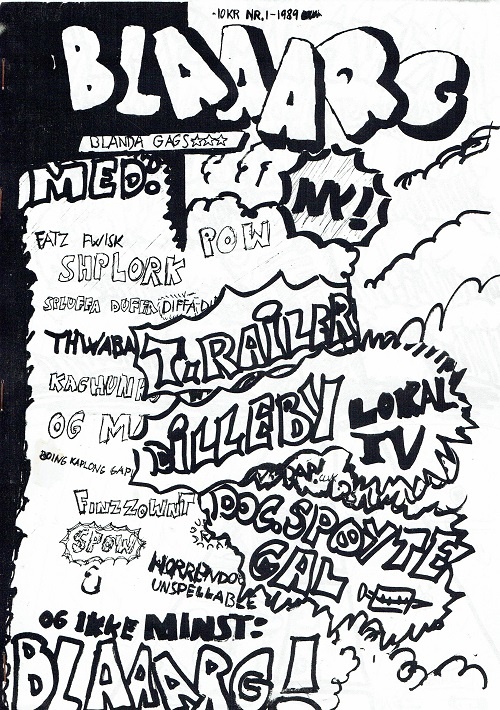 -10KR NR.1-1989
BLAAARG
BLANDA GAGS☆☆☆
MED:
NY!
FATZ FWISK
POW
SHPLORK
SPLUFFA DUFFA DIFFA
T.RAILER
THWABA
KACHUN
LILLEBY
LOKAL
TV
OG MU
BOING KAPLONG GAP
DOC.SPØYTE
GAL
FINZZOWNT
SPOW
HORRENDOU
UNSPELLABLE
OG IKKE MINST:
BLAAARG!